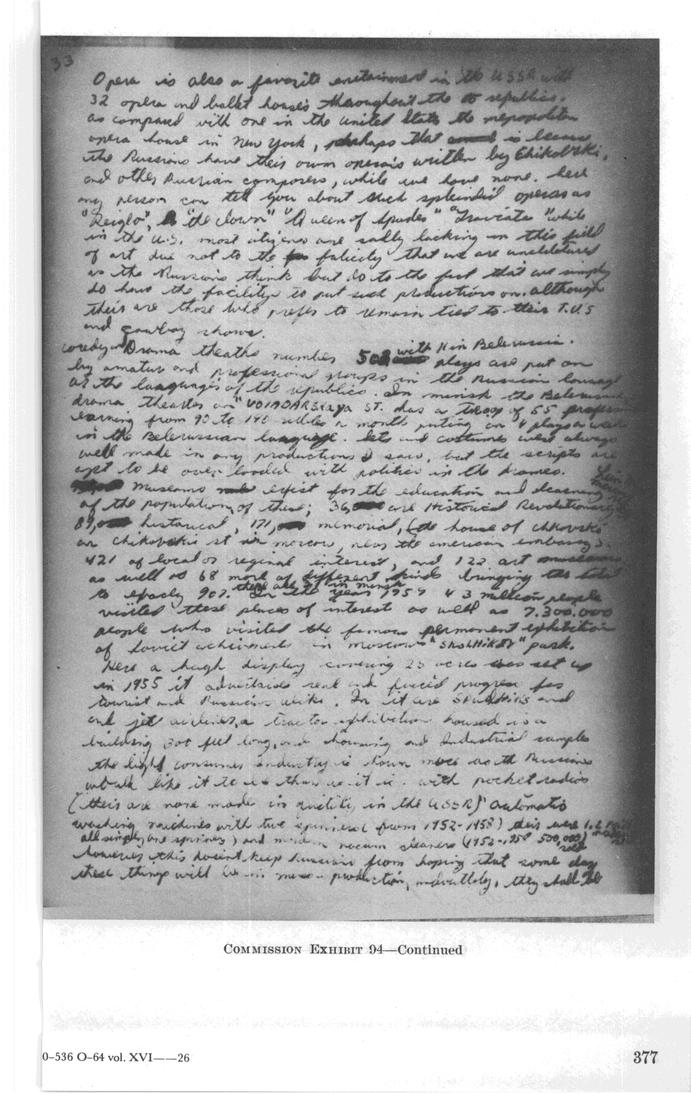 33
Opera is also a favorite entainment in the USSR with
32 opera and ballet houses throughout the republics.
as compared with one in the United States the metropolitan
opera house in New York, perhaps that is because
the Russians have their own opera's written by
and other Russian composers, while we have none.
any person can tell you about such splendid operas as
"Reiglo", "the clown" "Queen of Spades" "Traviata" while
in the U.S. most are sadly lacking in this field
of art due not to the that we are uncultured
as the Russians think but do to the fact that we simply
do have the facility to put such productions on. although
theirs are those who prefer to remain tied to their T.V.S
and cowboy shows.
Drama theaths number 508 with 11 in Belerussia.
by amatur and professional groups in the Russian
the languages of the republics. In minsk the
drama theather on ST. has a troop of 55
earning from 90 to 140 a month puting on 4 plays a week
in the Belerussian language. sets and costumes were always
well made in any productions I saw, but the scripts are
apt to be over loaded with politics in the dramas.
museums exist for the education and
of the population, of these; 36 are Historical Revolutionary
historical, 171 memorial, (the house of
on st in moscow, near the american embassy).
421 of local or reginal interest, and 122 art
as well as 68 more of different kinds bringing the total
to 907. they are in minsk
In the year 1957 43 million people
visited these places of interest as well as 7.300.000
people who visited the famous permonent exhibition
of Soviet in moscow's park.
Here a hugh display covering 25 acres was set up
in 1955 it real and progress for
tourist and Russians alike. In it are and
and jet airlines, a tractor exhibition housed in a
building 300 feet long, and housing and Industrial samples
the light consumer industry is shown more as the Russians
would like it to be than as it is. with pocket radios
(theirs are none made in in the USSR) automatic
washing machines with two (from 1952-1958) their were 1.2
all simply one ) and modern vacum cleaners (1952-1958 500,000)
however this keep Russian from hoping that some day
these things will be in mass production, they shall be
COMMISSION EXHIBIT 94—Continued
0-536 O-64 vol. XVI——26
377